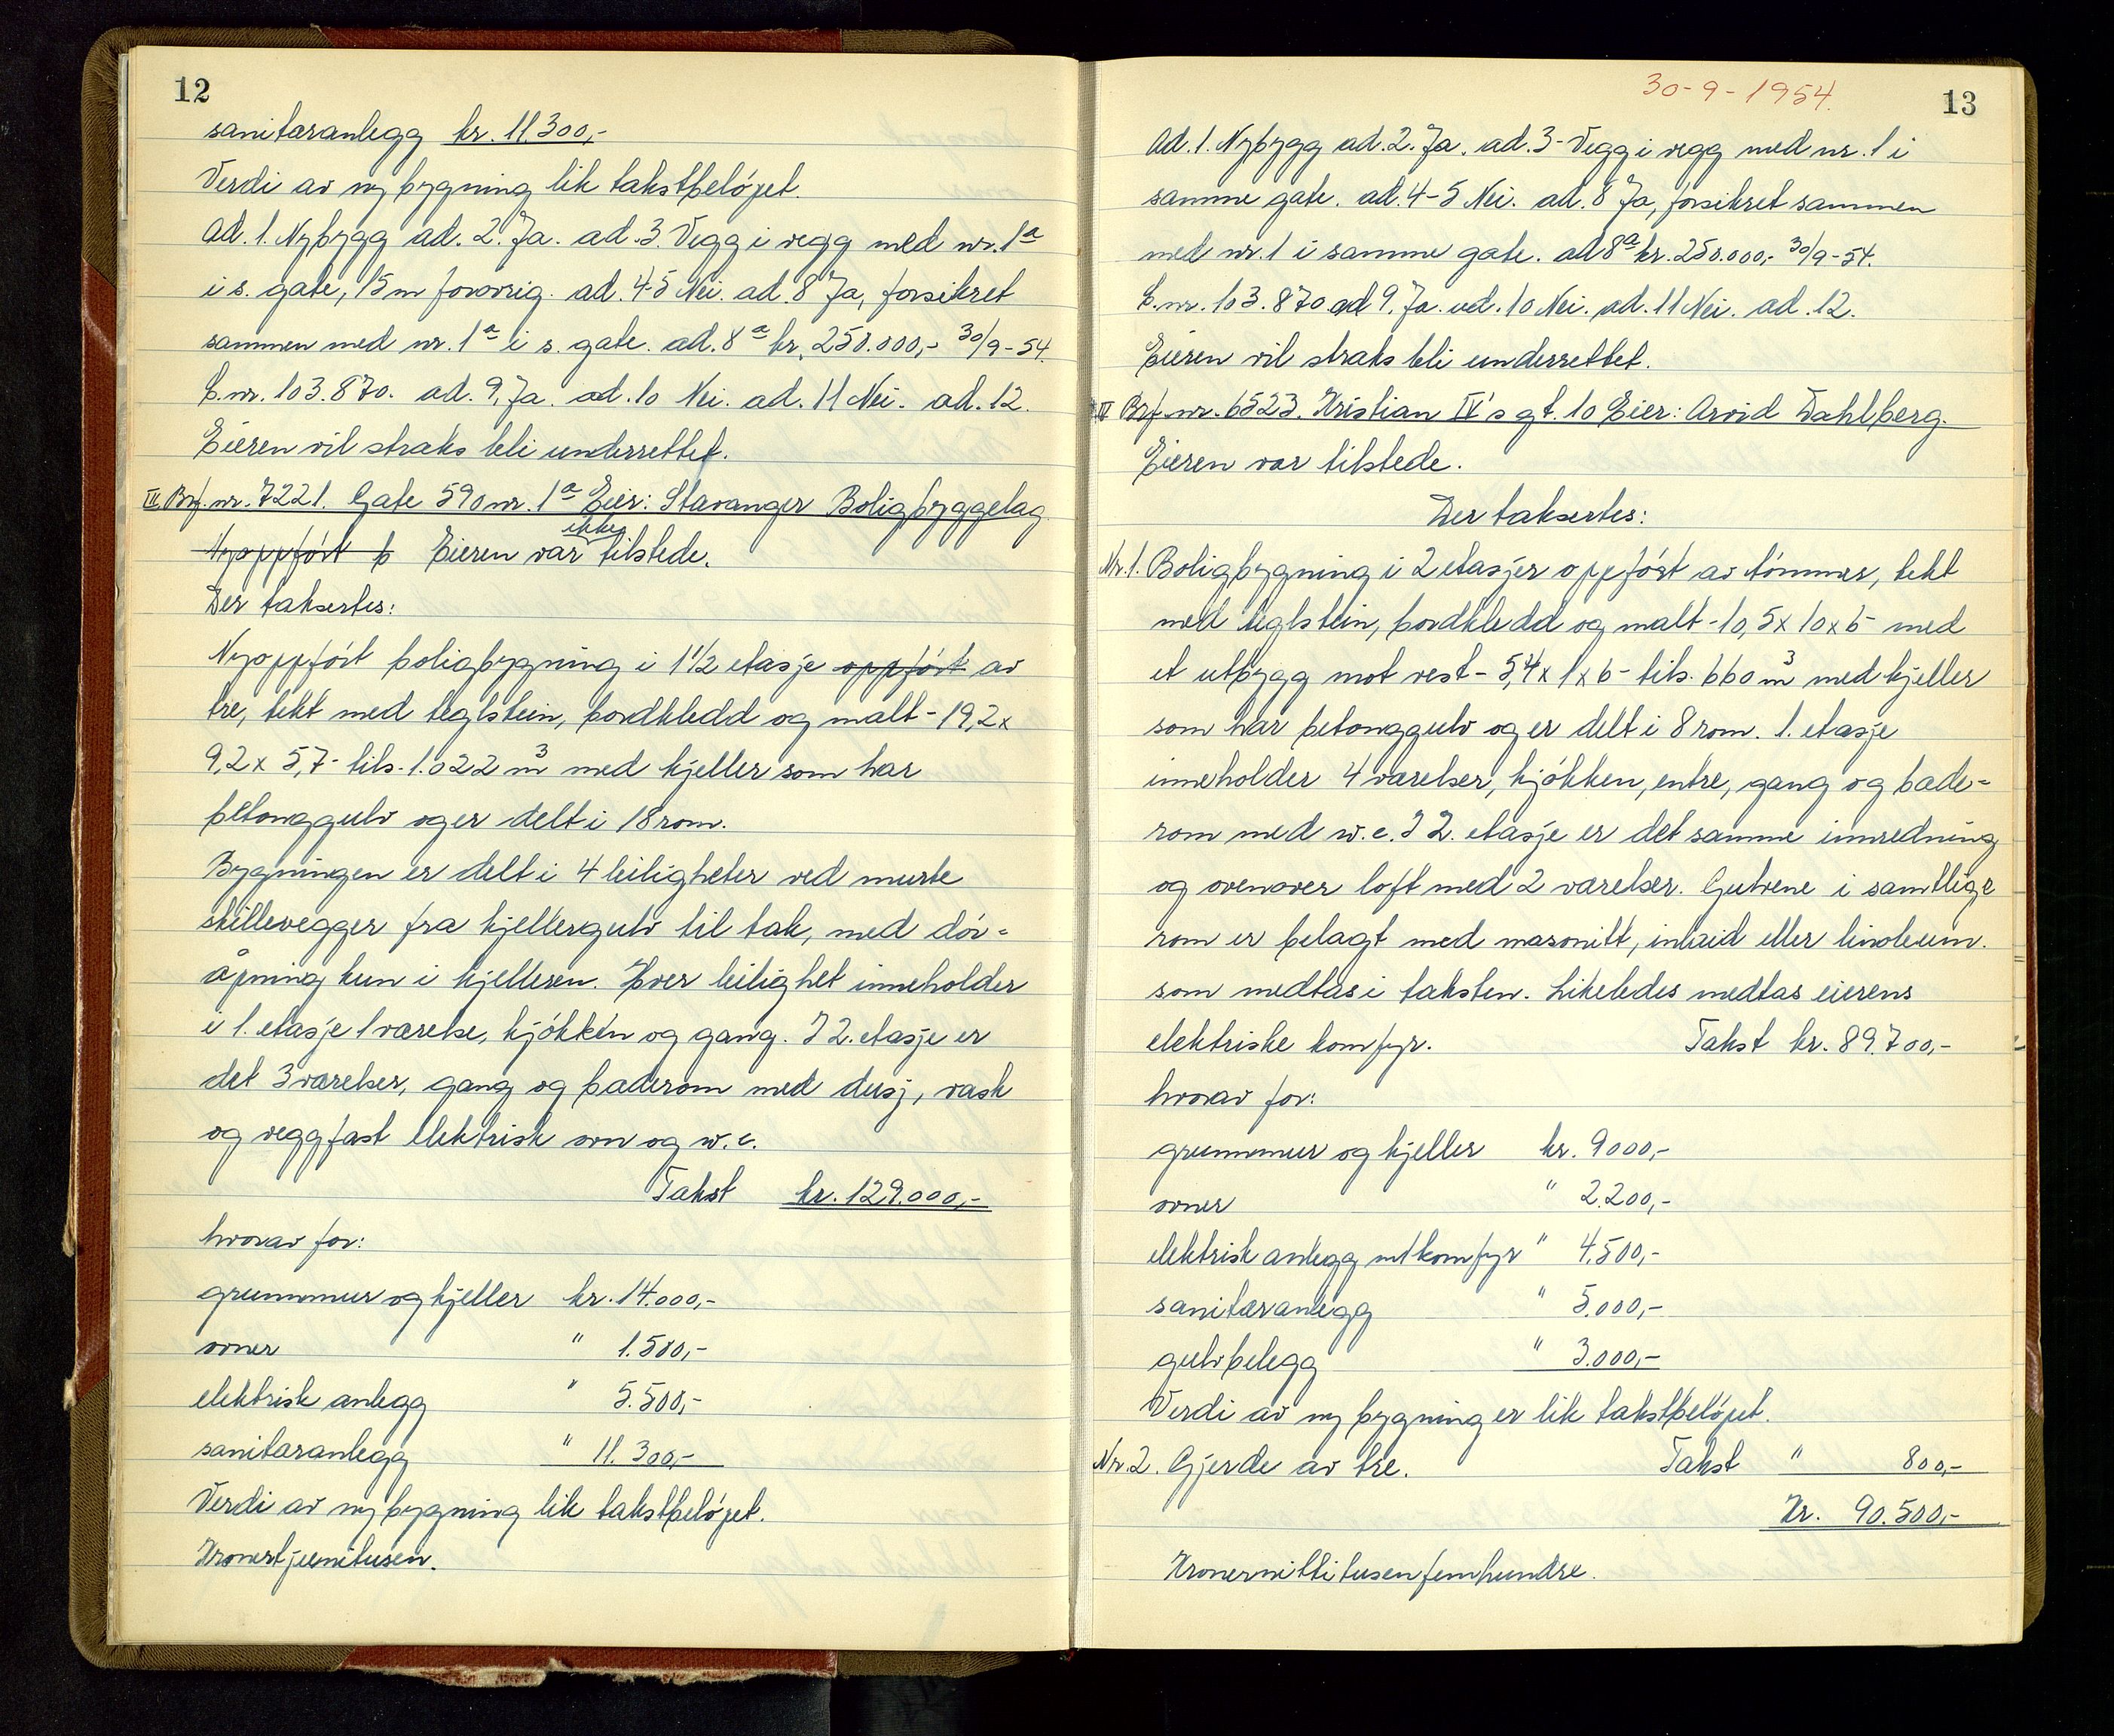 12
sanitæranlegg kr. 11.300,-
Verdi av ny bygning lik takstbeløpet.
Ad. 1. Nybygg ad. 2. Ja. ad. 3. Vegg i vegg med nr. 1a
i s. gate, 15 m forøvrig. ad. 4-5 Nei. ad. 8 Ja, forsikret
sammen med nr. 1a i s. gate. ad. 8a kr. 250.000,- 30/9-54.
L.nr. 103.870. ad. 9. Ja. ad. 10 Nei. ad. 11 Nei. ad. 12.
Eieren vil straks bli underrettet.
III Brf. nr. 7221. Gate 590 nr. 1a Eier: Stavanger Boligbyggelag
Nyoppført b Eieren var ikke tilstede.
Der taksertes:
Nyoppført boligbygning i 1 1/2 etasje oppført av
tre, tekt med teglstein, bordkledd og malt - 19,2 x
9,2 x 5,7 - tils. 1.022 m3 med kjeller som har
betonggulv og er delt i 18 rom.
Bygningen er delt i 4 leiligheter ved murte
skillevegger fra kjellergulv til tak, med dør-
åpning kun i kjelleren. Hver leilighet inneholder
i 1. etasje 1 værelse, kjøkken og gang. I 2. etasje er
det 3 værelser, gang og baderom med dusj, vask
og veggfast elektrisk ovn og w.c.
Takst kr. 129.000,-
hvorav for:
grunnmur og kjeller kr. 14.000,-
ovner " 1.500,-
elektrisk anlegg " 5.500,-
sanitæranlegg " 11.300,-
Verdi av ny bygning lik takstbeløpet.
30-9-1954.
13
Ad. 1. Nybygg ad. 2. Ja. ad. 3 - Vegg i vegg med nr. 1 i
samme gate. ad. 4-5 Nei. ad. 8 Ja, forsikret sammen
med nr. 1 i samme gate. ad 8a kr. 250.000,- 30/9-54.
L.nr. 103.870 ad 9. Ja. ad. 10 Nei. ad. 11 Nei. ad. 12.
Eieren vil straks bli underrettet.
IV Brf. nr. 6523. Kristian IV's gt. 10 Eier: Arvid Dahlberg.
Eieren var tilstede.
Der taksertes:
Nr. 1. Boligbygning i 2 etasjer oppført av tømmer, tekt
med teglstein, bordkledd og malt - 10,5 x 10 x 6 - med
et utbygg mot vest - 5,4 x 1 x 6 - tils. 660 m3 med kjeller
som har betonggulv og er delt i 8 rom. 1. etasje
inneholder 4 værelser, kjøkken, entre, gang og bade-
rom med w.c. I 2. etasje er det samme innredning
og ovenover loft med 2 værelser. Gulvene i samtlige
rom er belagt med masonitt, inlaid eller linoleum.
som medtas i taksten. Likeledes medtas eierens
elektriske komfyr. Takst kr. 89.700,-
hvorav for:
grunnmur og kjeller kr. 9000,-
ovner " 2.200,-
elektrisk anlegg m/komfyr " 4.500,-
sanitæranlegg " 5.000,-
gulvbelegg " 3.000,-
Verdi av ny bygning er lik takstbeløpet.
Nr. 2. Gjerde av tre. Takst " 800,-
Kr. 90.500,-
Kronernittitusenfemhundre.